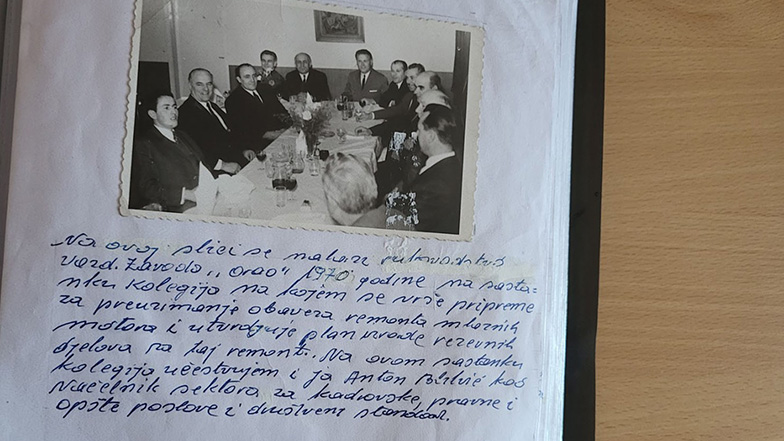 Na ovoj slici se nalazi rukovodstvo
vazd. Zavoda „Orao" 1970 godine na sasta-
nku kolegija na kojem se vrše pripreme
za preuzimanje obaveza remonta mlaznih
motora i utvrdjuje plan izrade rezervnih
djelova za taj remont. Na ovom sastanku
kolegija učestvujem i ja Anton kao
Načelnik sektora za kadrovske, pravne i
opšte poslove i društveni standard.